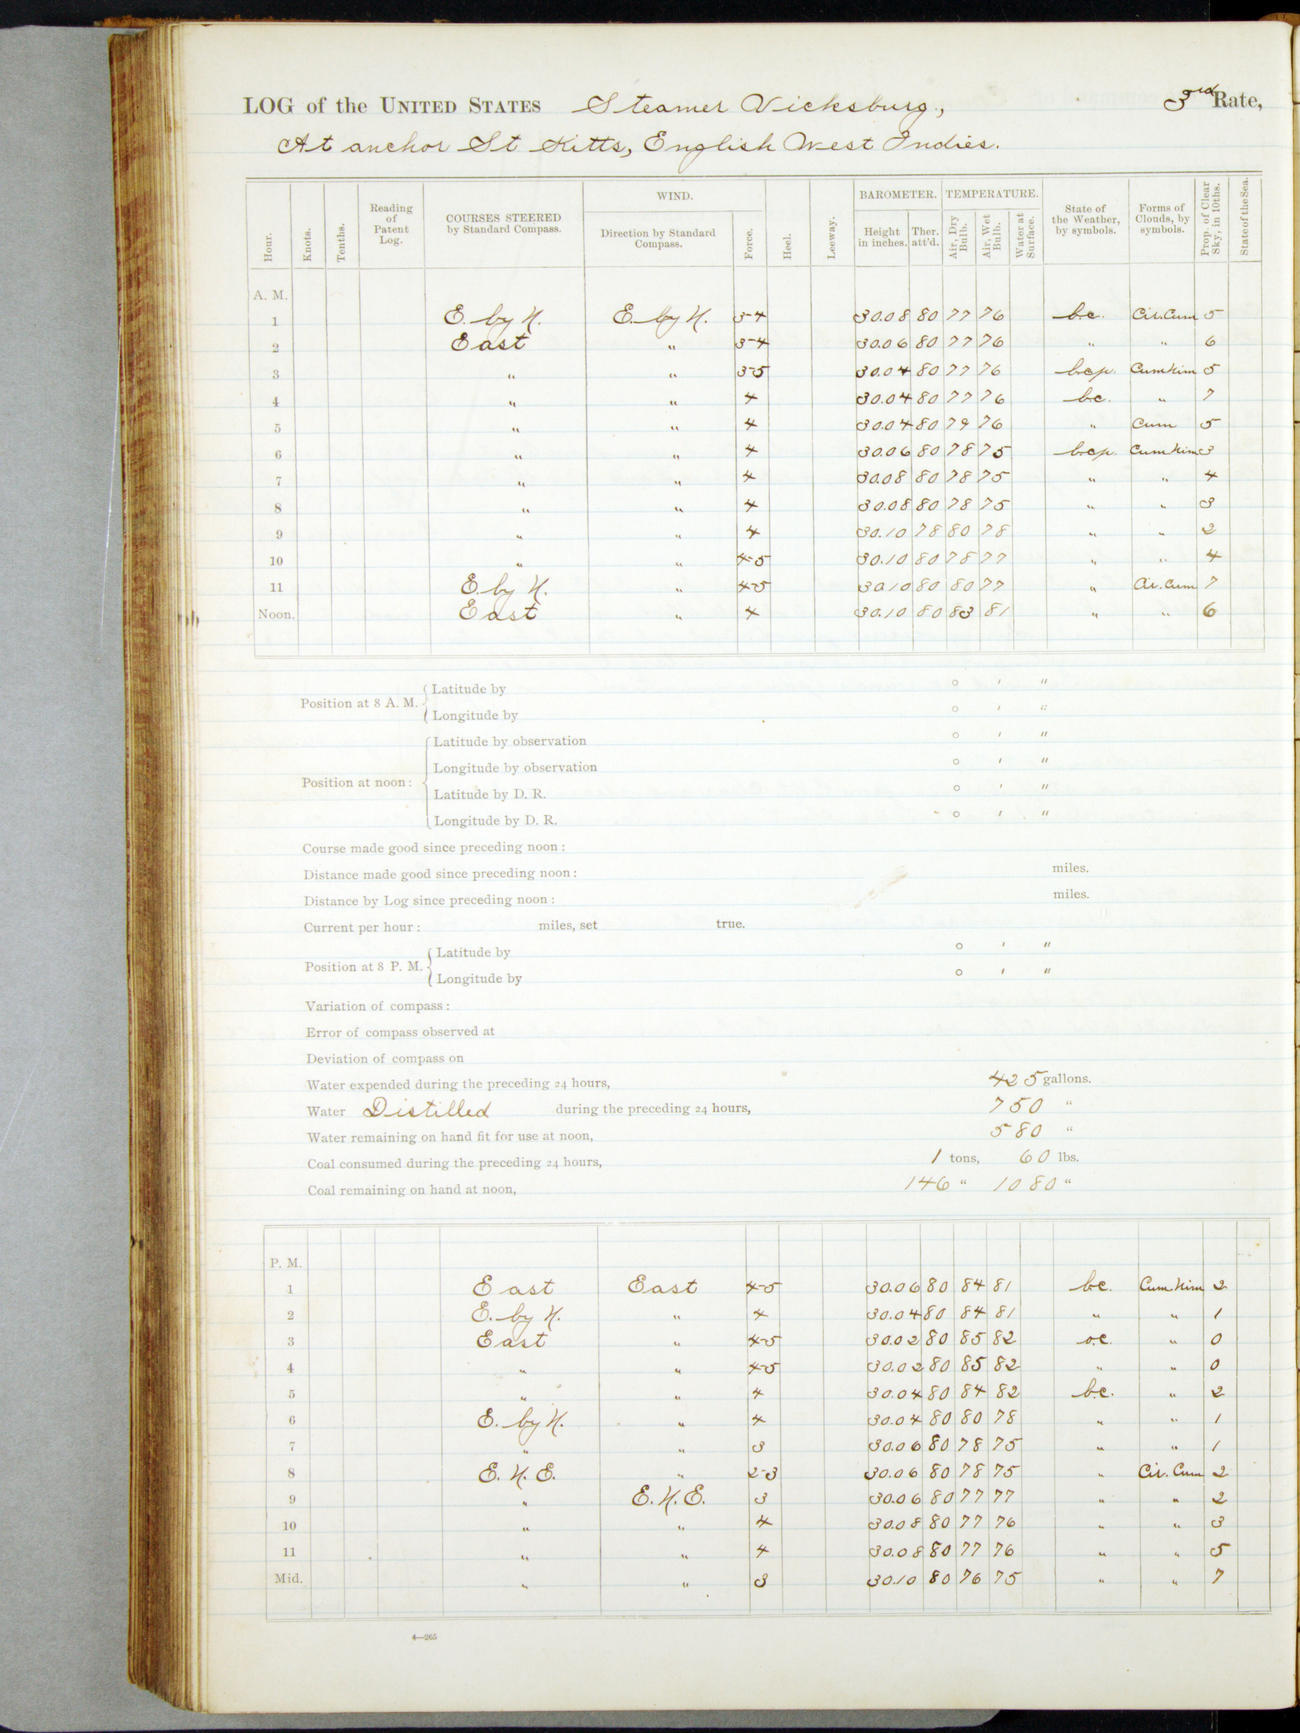 LOG of the UNITED STATES Steamer Vicksburg, 3rd Rate,
At anchor St Kitts, English West Indies.
Hour. Knots. Tenths. Reading of Patent Log. COURSES STEERED by Standard Compass. WIND. Direction by Standard Compass. Force. Heel. Leeway. BAROMETER. Height in inches. Ther. att'd. TEMPERATURE. Air, Dry Bulb. Air, Wet Bulb. Water at Surface. State of the Weather, by symbols. Forms of Clouds, by symbols. Prop. of Clear Sky, in 10ths. State of the Sea.
A. M.
1 E. by N. E. by N. 3-4 30.08 80 77 76 b.c. Cir.Cum 5
2 East " 3-4 30.06 80 77 76 " " 6
3 " " 3-5 30.04 80 77 76 b.c.p. Cum Nim 5
4 " " 4 30.04 80 77 76 b.c. " 7
5 " " 4 30.04 80 79 76 " Cum 5
6 " " 4 30.06 80 78 75 b.c.p. Cum Nim 3
7 " " 4 30.08 80 78 75 " " 4
8 " " 4 30.08 80 78 75 " " 3
9 " " 4 30.10 78 80 78 " " 2
10 " " 4-5 30.10 80 78 77 " " 4
11 E. by N. " 4-5 30.10 80 80 77 " Cir. Cum 7
Noon. East " 4 30.10 80 83 81 " " 6
Position at 8 A. M. Latitude by ° ′ ″
Longitude by ° ′ ″
Position at noon: Latitude by observation ° ′ ″
Longitude by observation ° ′ ″
Latitude by D. R. ° ′ ″
Longitude by D. R. ° ′ ″
Course made good since preceding noon:
Distance made good since preceding noon: miles.
Distance by Log since preceding noon: miles.
Current per hour: miles, set true.
Position at 8 P. M. Latitude by ° ′ ″
Longitude by ° ′ ″
Variation of compass:
Error of compass observed at
Deviation of compass on
Water expended during the preceding 24 hours, 425 gallons.
Water Distilled during the preceding 24 hours, 750 "
Water remaining on hand fit for use at noon, 580 "
Coal consumed during the preceding 24 hours, 1 tons, 60 lbs.
Coal remaining on hand at noon, 146 " 1080 "
P. M.
1 East East 4-5 30.06 80 84 81 b.c. Cum Nim 2
2 E. by N. " 4 30.04 80 84 81 " " 1
3 East " 4-5 30.02 80 85 82 o.c. " 0
4 " " 4-5 30.02 80 85 82 " " 0
5 " " 4 30.04 80 84 82 b.c. " 2
6 E. by N. " 4 30.04 80 80 78 " " 1
7 " " 3 30.06 80 78 75 " " 1
8 E. N. E. " 2-3 30.06 80 78 75 " Cir. Cum 2
9 " E. N. E. 3 30.06 80 77 77 " " 2
10 " " 4 30.08 80 77 76 " " 3
11 " " 4 30.08 80 77 76 " " 5
Mid. " " 3 30.10 80 76 75 " " 7
4—265